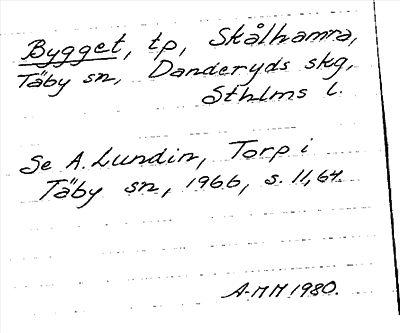 Bygget, tp, Skålhamra,
Täby sn, Danderyds skg,
Sthlms l.
Se A. Lundin, Torp i
Täby sn, 1966, s. 11,64.
A-MM 1980.